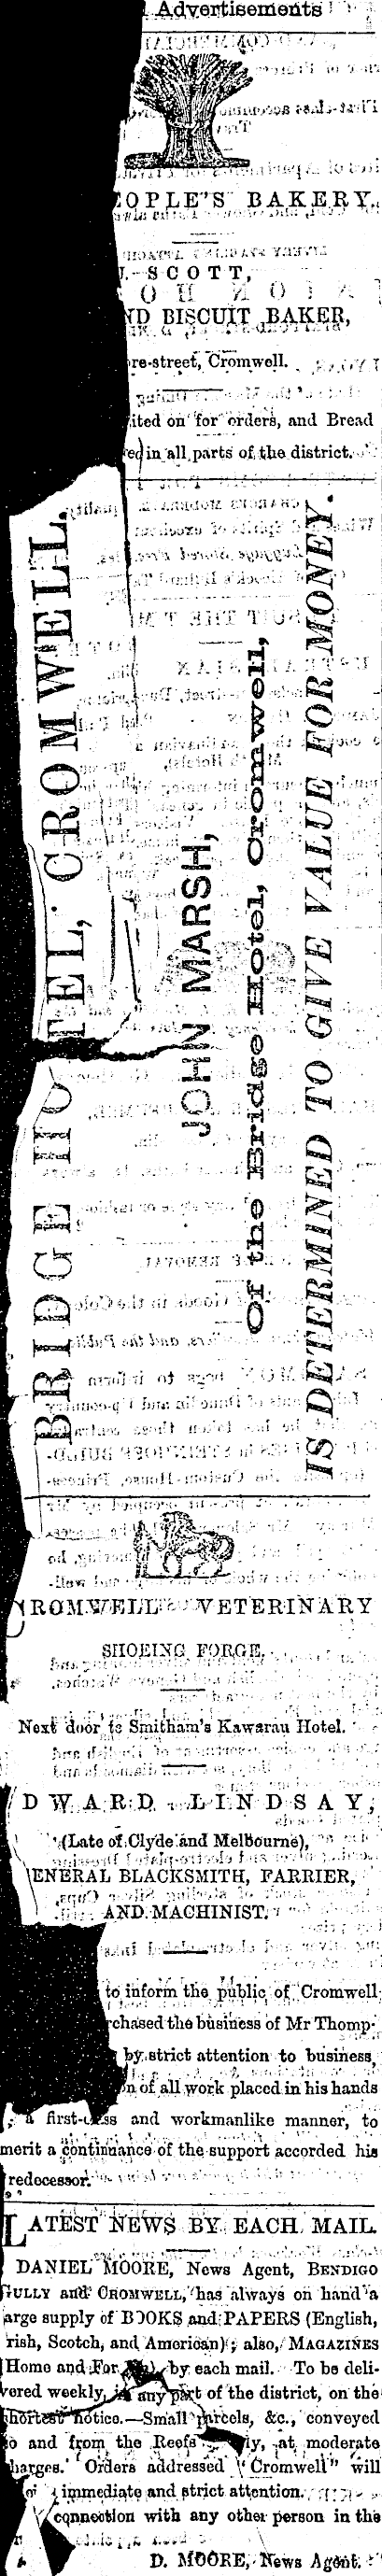 Advertisements
BAKERY.
J. SCOTT,
BISCUIT BAKER,
Cromwell.
on for orders, and Bread
in all parts of the district.
BRIDGE HOTEL, CROMWELL.
JOHN MARSH,
Of the Bridge Hotel, Cromwell,
IS DETERMINED TO GIVE VALUE FOR MONEY.
CROMWELL VETERINARY
SHOEING FORGE,
Next door to Smitham's Kawarau Hotel.
DWARD LINDSAY,
(Late of Clyde and Melbourne),
ENERAL BLACKSMITH, FARRIER,
AND MACHINIST,
to inform the public of Cromwell
chased the business of Mr Thomp-
by strict attention to business,
of all work placed in his hands
a first-class and workmanlike manner, to
merit a continuance of the support accorded his
redecessor.
LATEST NEWS BY EACH MAIL.
DANIEL MOORE, News Agent, BENDIGO
GULLY and CROMWELL, has always on hand a
arge supply of BOOKS and PAPERS (English,
rish, Scotch, and American); also, MAGAZINES
Home and by each mail. To be deli-
vered weekly, in any part of the district, on the
shortest notice.—Small parcels, &c., conveyed
to and from the Reefs at moderate
charges. Orders addressed "Cromwell" will
immediate and strict attention.
connection with any other person in the
D. MOORE, News Agent.